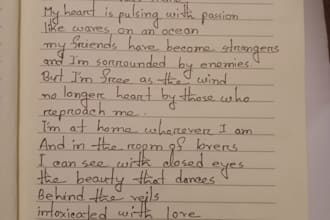 My heart is pulsing with passion
like waves on an ocean
my friends have become strangers
and I'm sorrounded by enemies
But I'm free as the wind
no longer heart by those who
reproach me.
I'm at home wherever I am
And in the room of lovers
I can see with closed eyes
the beauty that dances
Behind the veils
intoxicated with love